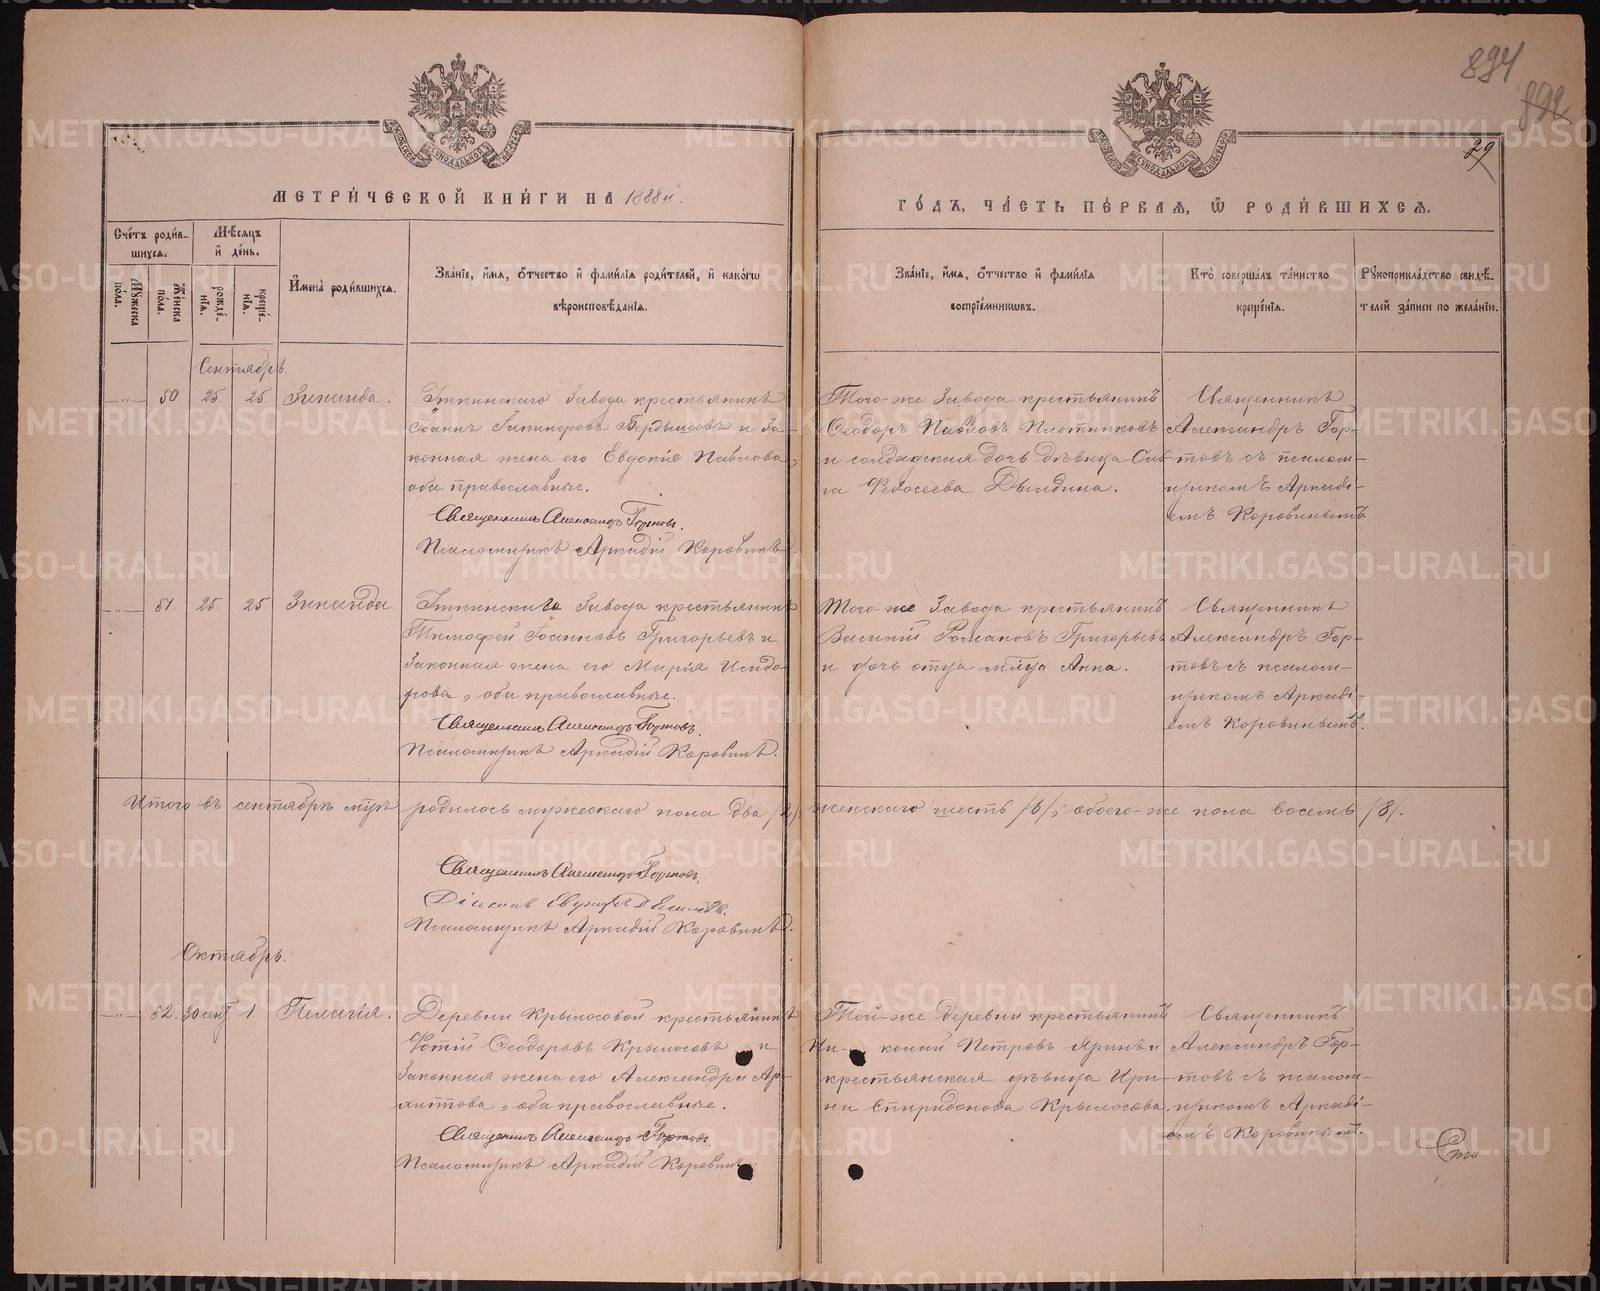 894
892
29
МЕТРИ́ЧЕСКОЙ КНИ́ГИ НА 1888й.
ГО́ДЪ, ЧА́СТЬ ПЕ́РВАЯ, Ѡ РОДИ́ВШИХСЯ.
Сче́тъ роди́в-
шихся.
Му́жеска
пола.
Же́нска
по́ла.
Мѣ́сяцъ
и҆ де́нь.
рожде́-
нія.
креще́-
нія.
И҆мена̀ роди́вшихся.
Зва́ніе, и҆́мя, о҆́тчество и҆ фами́лія роди́телей, и҆ како́гѡ
вѣроисповѣ́данія.
Зва́ніе, и҆́мя, о҆́тчество и҆ фами́лія
воспріе́мниковъ.
Кто̀ соверша́лъ та́инство
креще́нія.
Рꙋкоприкла́дство свидѣ́-
телей за́писи по жела́нію.
Сентябрь
50 25. 25. Зинаида.
Иткинскаго Завода крестьянинъ
Іоаннъ и За-
конная жена его Евдокія Павлова,
оба православные.
Священникъ Александръ Гортовъ.
Псаломщикъ Аркадій Коровинъ.
Того-же Завода крестьянинъ
Ѳеодоръ Павловъ Плотниковъ
и солдадская дочь дѣвица
Федосеева Дылдина.
Священникъ
Александръ Гор-
товъ съ псалом-
щикомъ Аркаді-
емъ Коровинымъ.
51. 25. 25 Зинаида
Иткинскаго Завода крестьянинъ
Тимоѳей Іоанновъ Григорьевъ и
Законная жена его Марія Исидо-
рова, оба православные.
Священникъ Александръ Гортовъ.
Псаломщикъ Аркадій Коровинъ.
Того-же Завода крестьянинъ
Василій Романовъ Григорьевъ
и дочь отца Анна.
Священникъ
Александръ Гор-
товъ съ псалом-
щикомъ Аркаді-
емъ Коровинымъ.
Итого въ сентябрѣ мцѣ родилось мужескаго пола два /2/, женскаго шесть /6/, обоего-же пола восемь /8/.
Священникъ Александръ Гортовъ.
Діаконъ
Псаломщикъ Аркадій Коровинъ.
Октябрь.
52. 30 сент 1 Пелагія.
Деревни Крылосовой крестьянинъ
Фотій Ѳеодоровъ Крылосовъ и
Законная жена его Александра Ар-
Священникъ Александръ Гортовъ.
Псаломщикъ Аркадій Коровинъ
Той-же деревни крестьянинъ
Ни-колай Петровъ Яринъ и
крестьянская дѣвица Ири-
на Спиридонова Крылосова.
Священникъ
Александръ Гор-
товъ съ псалом-
щикомъ Аркаді-
емъ Коровинымъ.
Сто
METRIKI.GASO-URAL.RU